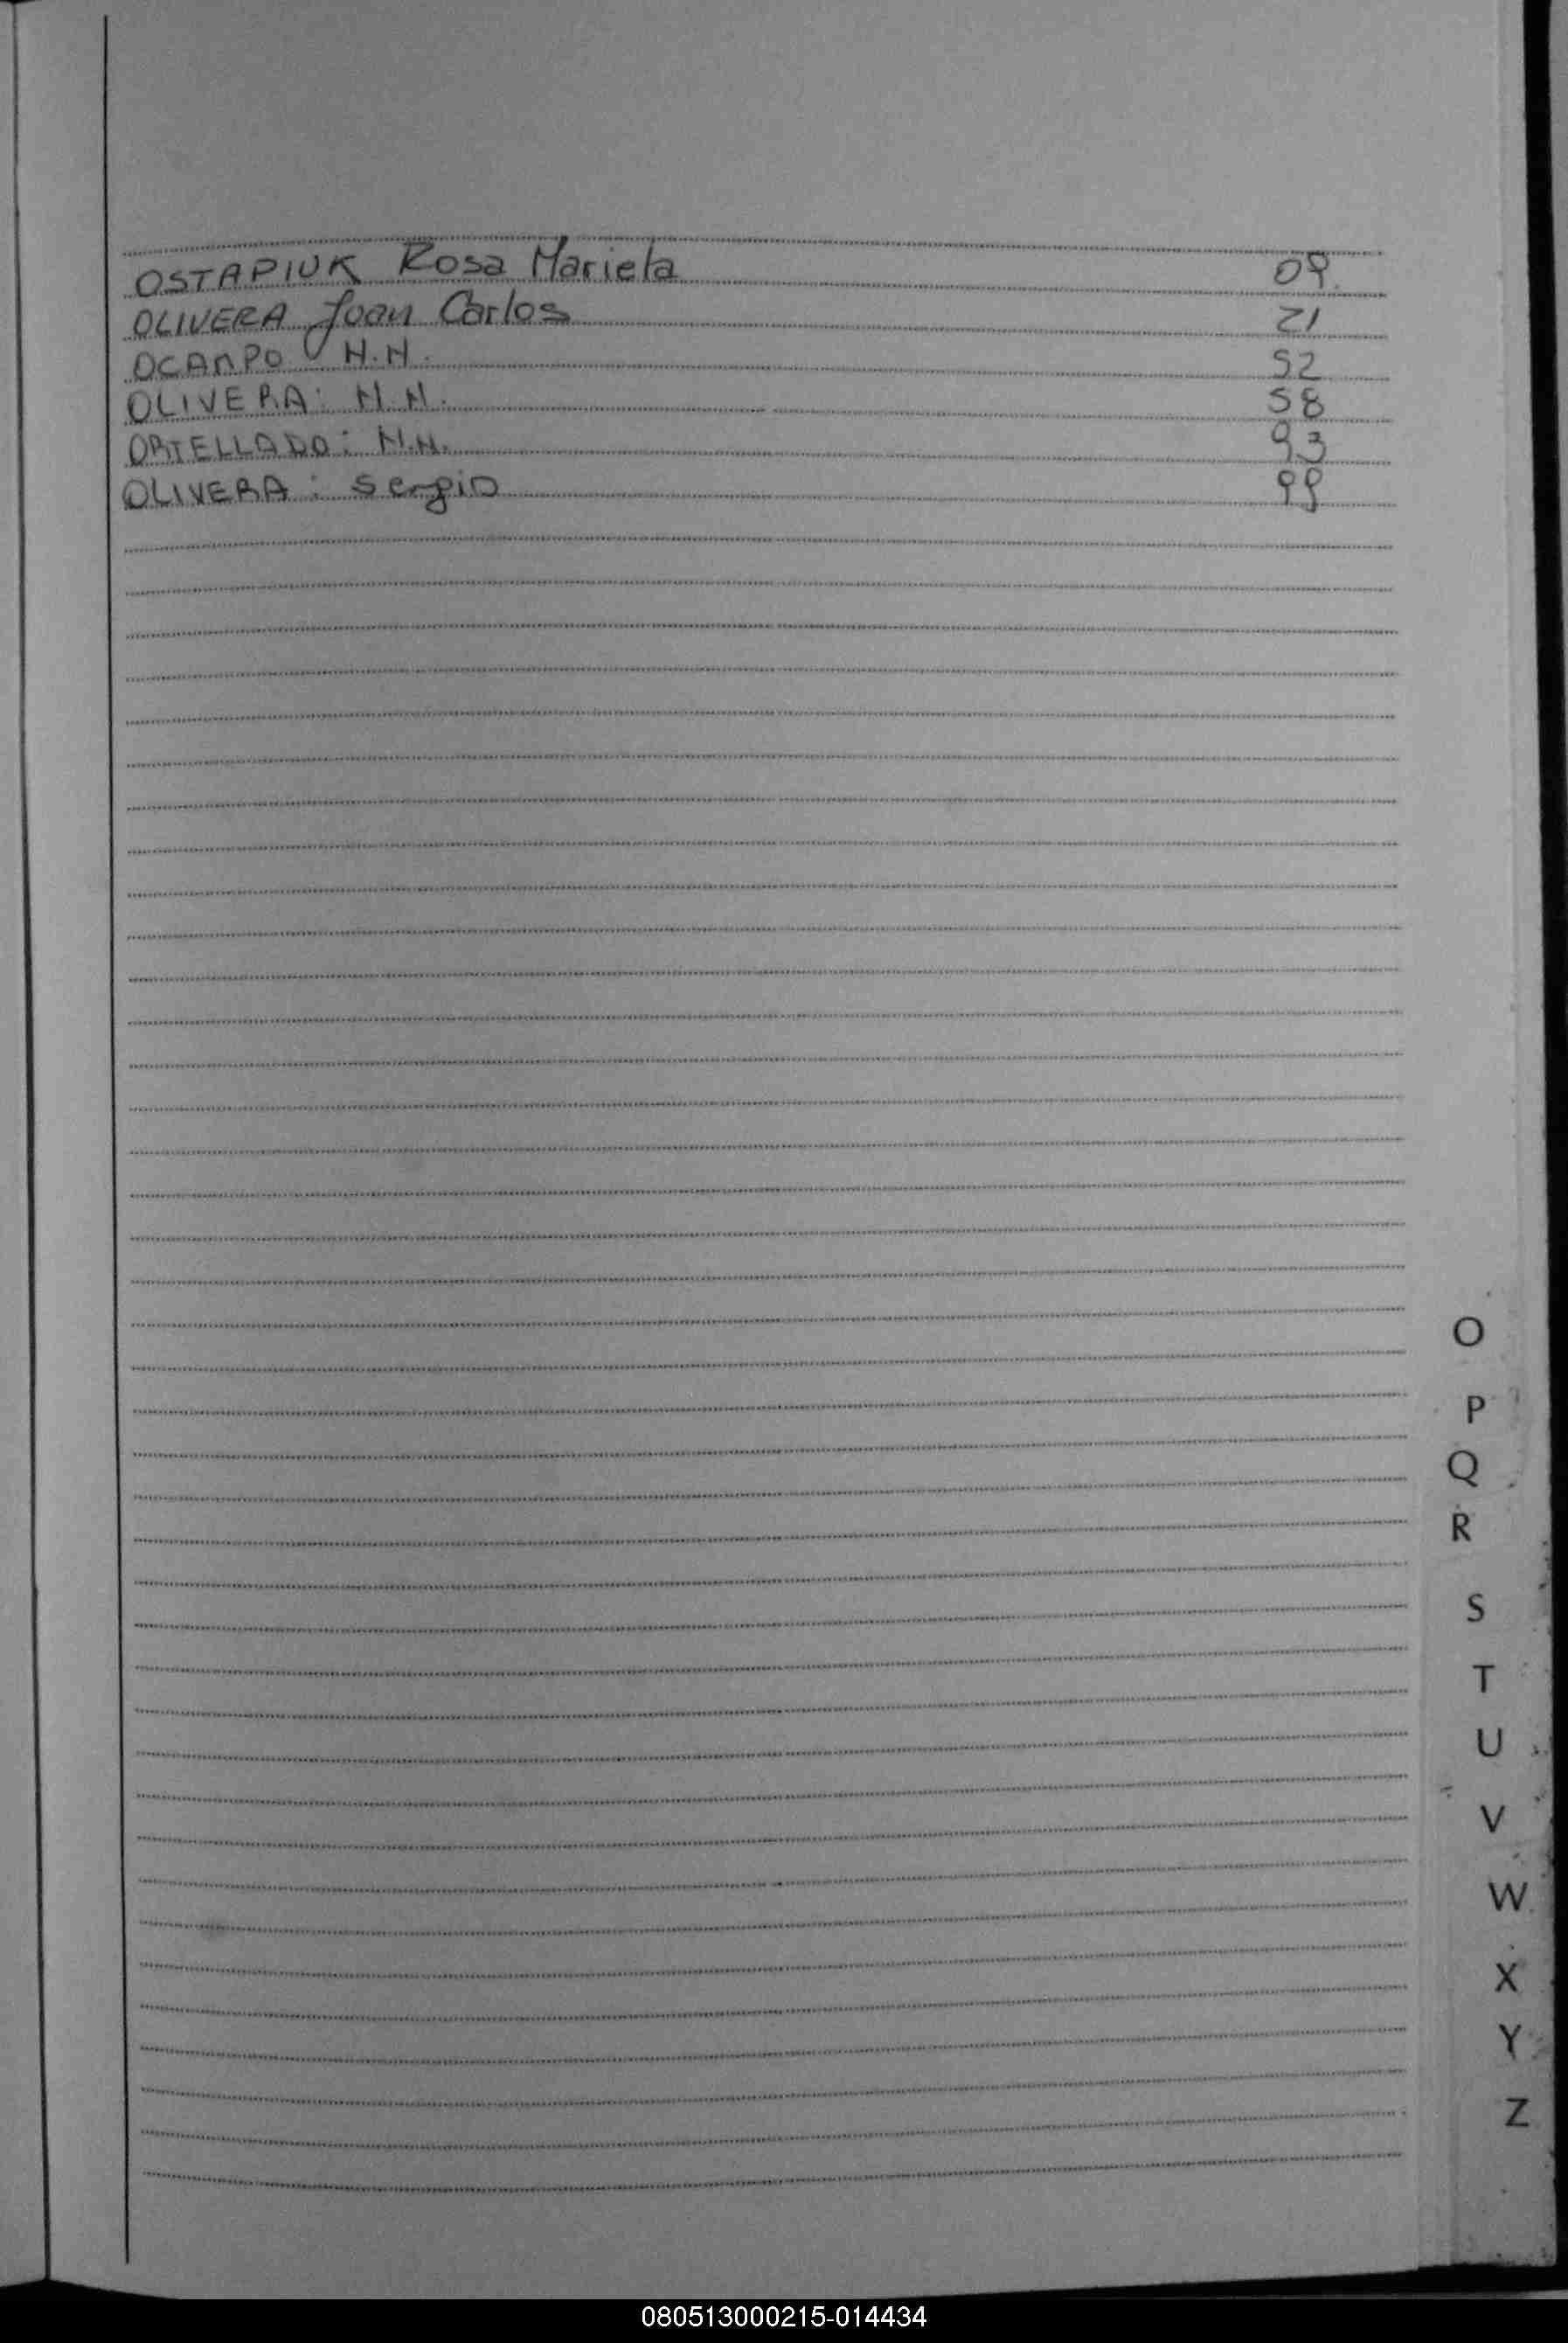 OSTAPIUK Rosa Mariela 09
OLIVERA Juan Carlos 21
OCAMPO N.N. 52
OLIVERA: N.N. 58
ORTELLADO: N.N. 93
OLIVERA: Sergio 99
O
P
Q
R
S
T
U
V
W
X
Y
Z
080513000215-014434